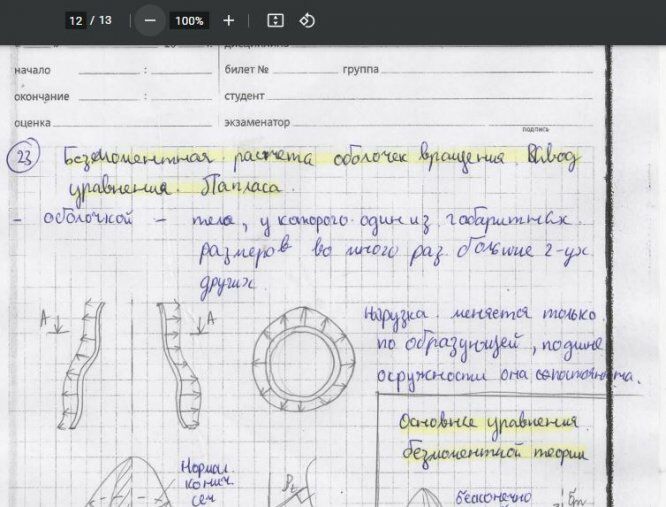 12 / 13 — 100% +
начало : билет № группа
окончание : студент
оценка экзаменатор
подпись
23 Безмоментная расчета оболочек вращения. Вывод
уравнения Лапласа.
- оболочкой - тела, у которого один из габаритных
размеров во много раз больше 2-ух
других.
A A
нагрузка меняется только
по образующей, по длине
окружности она
Основные уравнения
безмоментной теории
Нормал.
конич
сеч
бесконечно